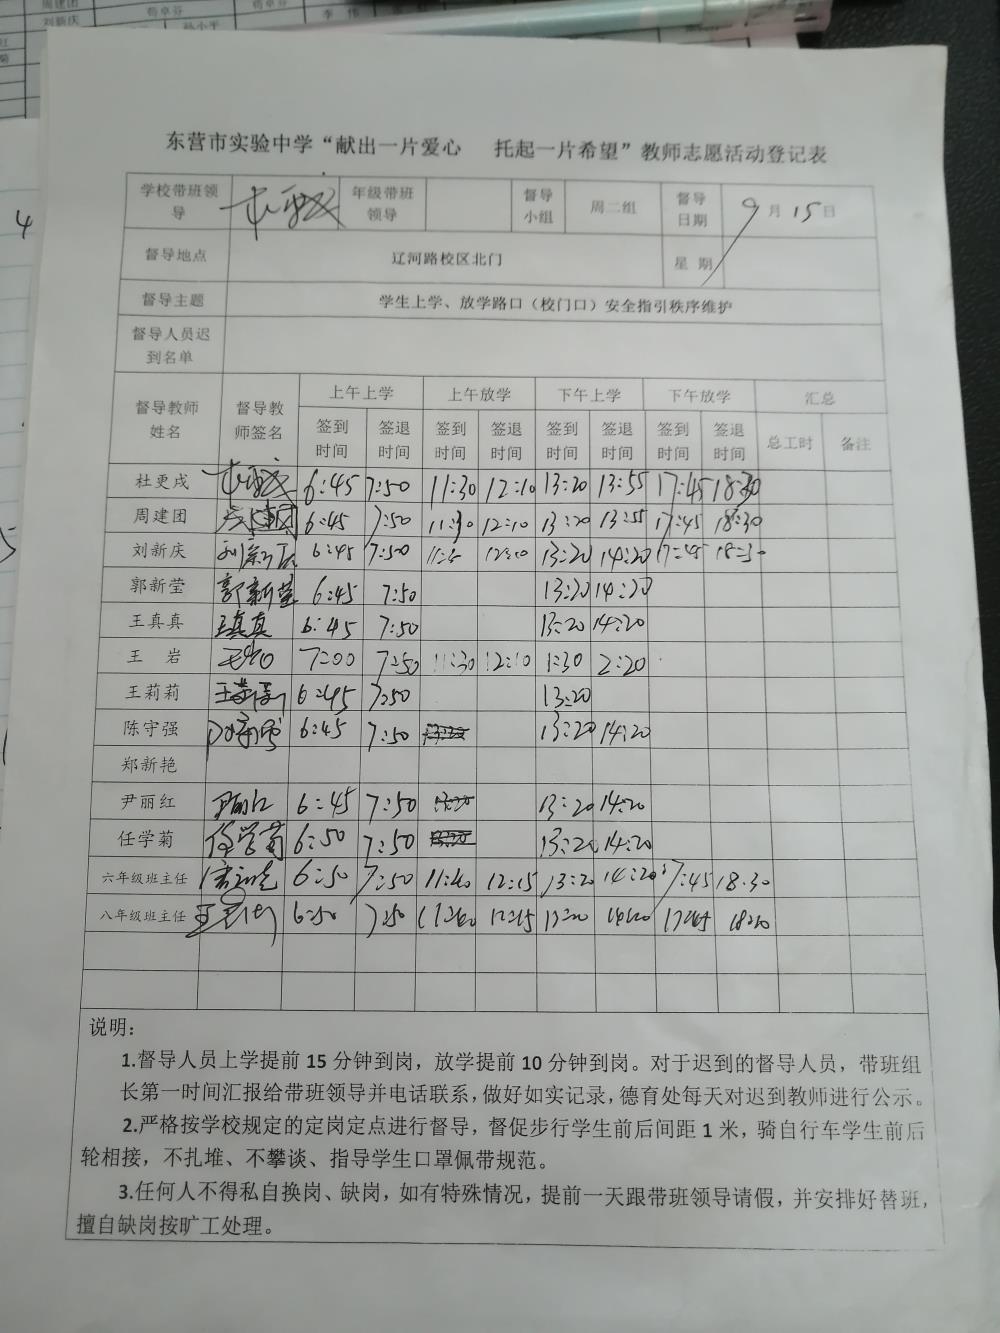 周建团 苟卓芬
刘新庆 孙小平 李伟
4
东营市实验中学“献出一片爱心 托起一片希望”教师志愿活动登记表
学校带班领导 年级带班领导 督导小组 周二组 督导日期 9月15日
督导地点 辽河路校区北门 星 期
督导主题 学生上学、放学路口（校门口）安全指引秩序维护
督导人员迟到名单
督导教师姓名 督导教师签名 上午上学 上午放学 下午上学 下午放学 汇总
签到时间 签退时间 签到时间 签退时间 签到时间 签退时间 签到时间 签退时间 总工时 备注
杜更戌 6:45 7:50 11:30 12:10 13:20 13:55 17:45 18:30
周建团 周建团 6:45 7:50 11:30 12:10 13:20 13:55 17:45 18:30
刘新庆 刘新庆 6:45 7:50 12:10 13:20 14:20 17:45 18:30
郭新莹 郭新莹 6:45 7:50 13:20 14:20
王真真 王真真 6:45 7:50 13:20 14:20
王 岩 王岩 7:00 7:50 11:30 12:10 1:30 2:20
王莉莉 王莉莉 6:45 7:50 13:20
陈守强 陈守强 6:45 7:50 13:20 13:20 14:20
郑新艳
尹丽红 尹丽红 6:45 7:50 13:20 13:20 14:20
任学菊 任学菊 6:50 7:50 13:20 13:20 14:20
六年级班主任 6:50 7:50 11:40 12:15 13:20 14:20 17:45 18:30
八年级班主任 6:50 7:50 11:40 12:15 13:20 14:20 17:45 18:30
说明：
1.督导人员上学提前 15 分钟到岗，放学提前 10 分钟到岗。对于迟到的督导人员，带班组
长第一时间汇报给带班领导并电话联系，做好如实记录，德育处每天对迟到教师进行公示。
2.严格按学校规定的定岗定点进行督导，督促步行学生前后间距 1 米，骑自行车学生前后
轮相接，不扎堆、不攀谈、指导学生口罩佩带规范。
3.任何人不得私自换岗、缺岗，如有特殊情况，提前一天跟带班领导请假，并安排好替班，
擅自缺岗按旷工处理。